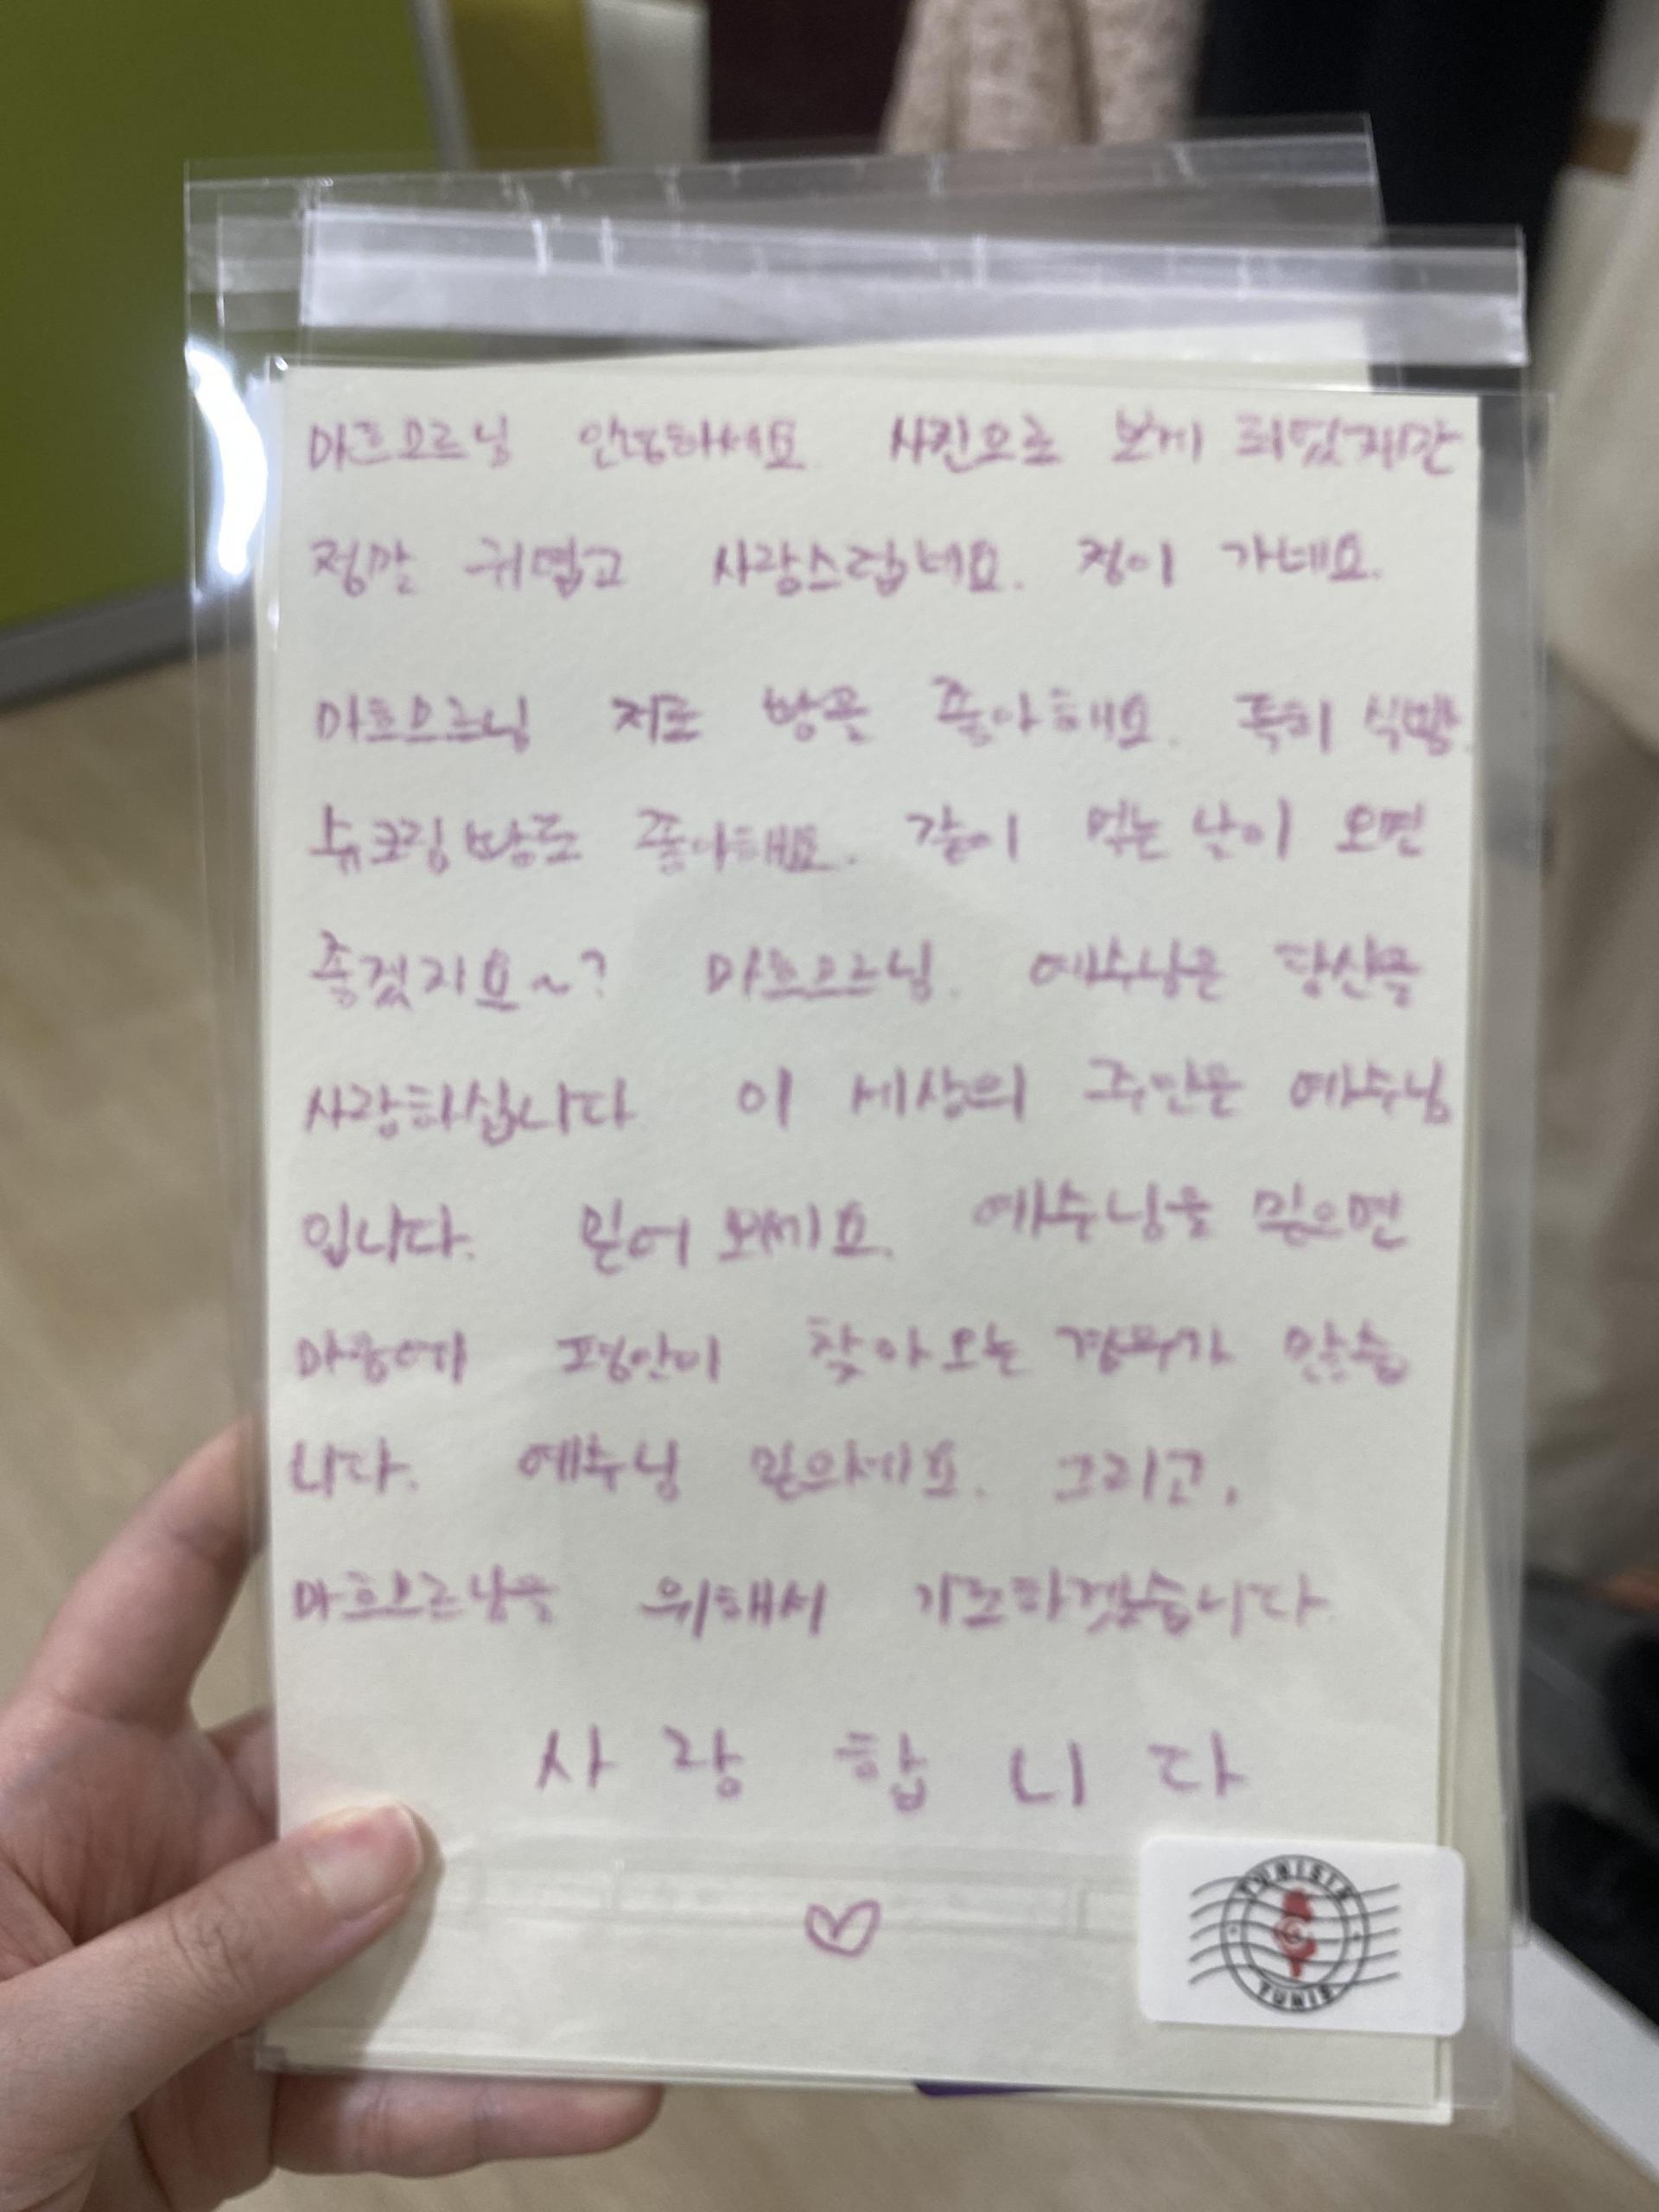 마흐므르님 안녕하세요 사진으로 보게 되었지만
정말 귀엽고 사랑스럽네요. 정이 가네요.
마흐므르님 저도 빵을 좋아해요. 특히 식빵.
슈크림빵도 좋아해요. 같이 먹는 날이 오면
좋겠지요~? 마흐므르님. 예수님은 당신을
사랑하십니다 이 세상의 주인은 예수님
입니다. 믿어 보세요. 예수님을 믿으면
마음에 평안이 찾아오는 경우가 많습
니다. 예수님 믿으세요. 그리고,
마흐므르님을 위해서 기도하겠습니다
사랑합니다
TUNISIE
TUNIS